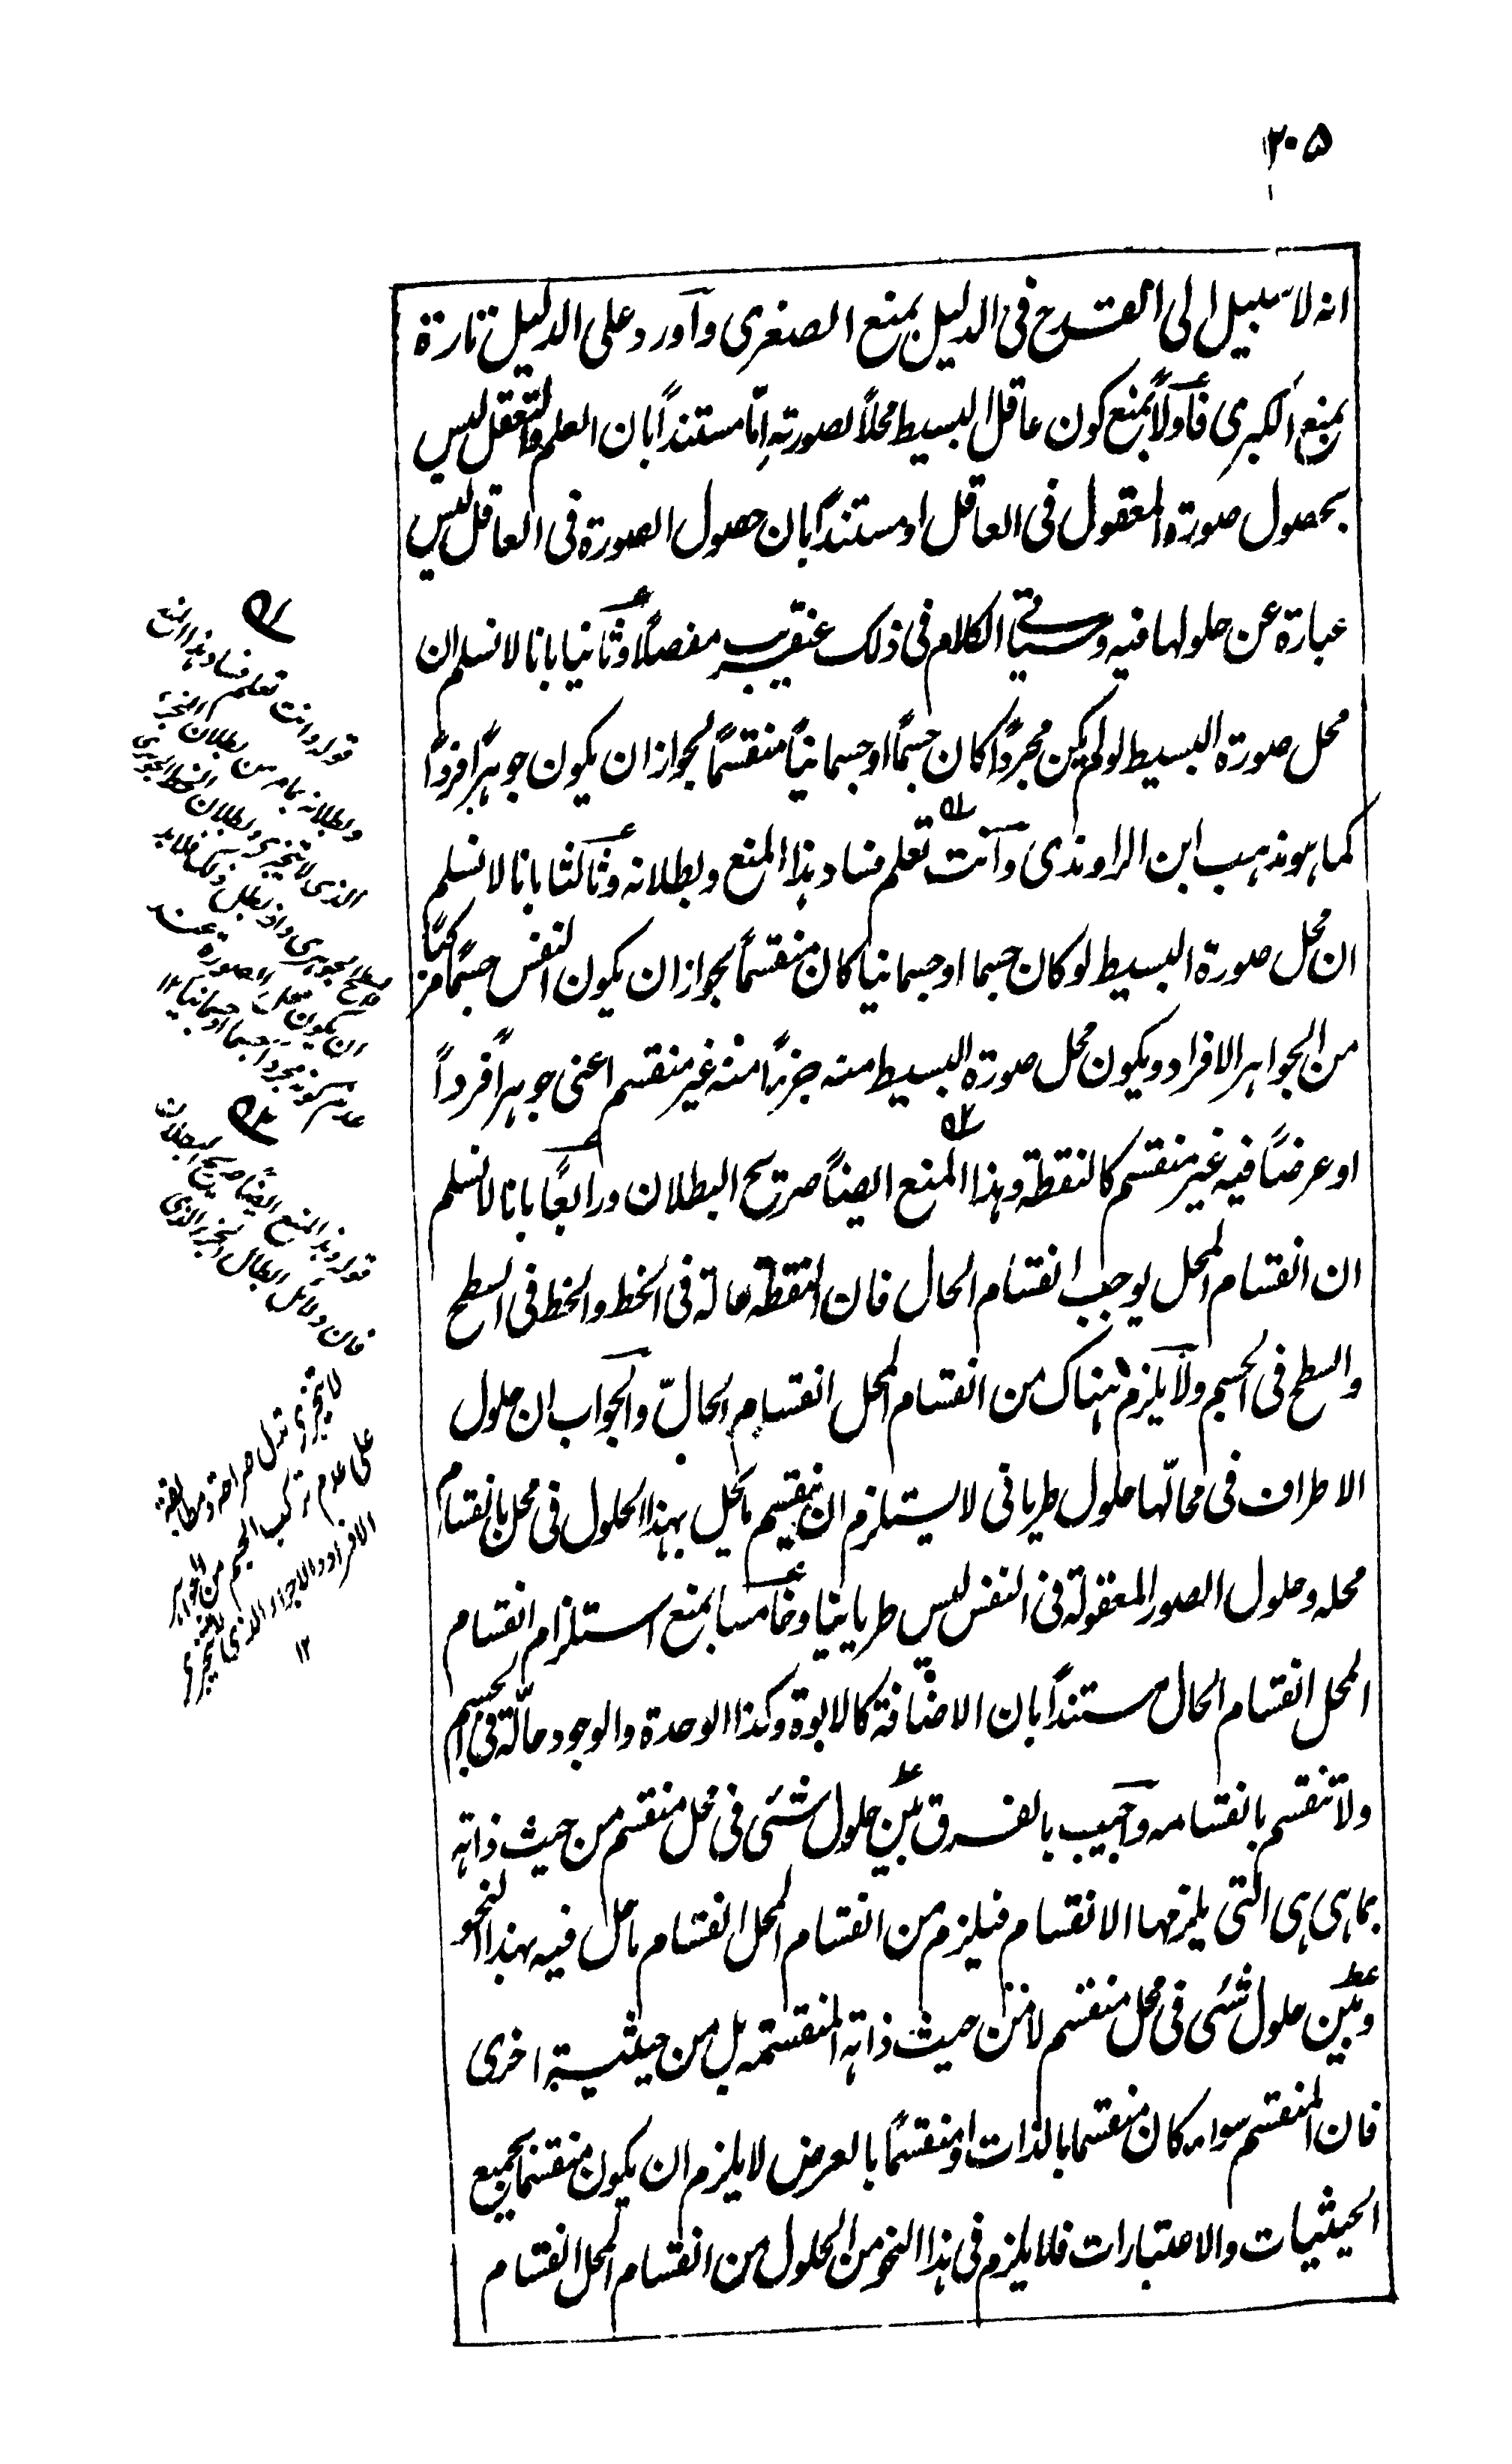 ٢٠٥
انه لا سبيل الى القدح فى الدليل بمنع الصغرى وآورد على الدليل تارة
بمنع الكبرى فآولاً بمنع كون عاقل البسيط محلاً لصورته اِمّا مستنداً بان العلم والتعقل ليس
بحصول صورة المعقول فى العاقل او مستنداً بان حصول الصورة فى العاقل ليس
عبارة عن حلولها فيه وسياتى الكلام فى ذلك عنقريب مفصلاً وثانيا بانا لا نسلم ان
محل صورة البسيط لو لم يكن مجرداً كان جسماً او جسمانياً منقسماً لجواز ان يكون جوهراً فرداً
كما هو مذهب ابن الراوندى وآنت تعلم فساد هذا المنع وبطلانه وثالثا بانا لا نسلم
ان محل صورة البسيط لو كان جسما او جسمانيا كان منقسماً لجواز ان يكون النفس جسماً مركباً
من الجواهر الافراد ويكون محل صورة البسيط منه جزءاً منه غير منقسم اعنى جوهراً فرداً
او عرضاً فيه غير منقسم كالنقطة وهذا المنع ايضاً صريح البطلان ورابعاً بانا لا نسلم
ان انقسام المحل يوجب انقسام الحال فان النقطة حالة فى الخط والخط فى السطح
والسطح فى الجسم ولا يلزم هناك من انقسام المحل انقسام الحالّ وآلجواب ان حلول
الاطراف فى محالّها حلول طريانى لا يستلزم ان ينقسم ما يحل بهذا الحلول فى محل بانقسام
محله وحلول الصور المعقولة فى النفس ليس طريانيا وخامسا بمنع استلزام انقسام
المحل انقسام الحال مستنداً بان الاضافة كالابوة وكذا الوحدة والوجود حالّة فى الجسم
ولا تنقسم بانقسامه وآجيب بالفرق بين حلول شئى فى محل منقسم من حيث ذاته
بما هى هى التى يلزمها الانقسام فيلزم من انقسام المحل انقسام ما حل فيه بهذا النحو
وبين حلول شئى فى محل منقسم لا من حيث ذاته المنقسمة بل من حيثية اخرى
فان المنقسم سواء كان منقسما بالذات او منقسماً بالعرض لا يلزم ان يكون منقسماً بجميع
الحيثيات والاعتبارات فلا يلزم فى هذا النحو من الحلول من انقسام المحل انقسام
قوله وانت تعلم فساد هذا المنع
وبطلانه بما مر من بطلان الجزء
الذى لا يتجزى وبطلان الخط الجوهرى
والسطح الجوهرى واذ بطل ذلك فلا بد
ان يكون محل الصورة عند
عدم كونه مجرداً جسما او جسمانيا ١٢
قوله وهذا المنع ايضاً صريح البطلان
فان دلائل ابطال الجزء الذى
لا يتجزى تدل صراحة ومطابقة
على عدم تركب الجسم من الجواهر
الافراد والاجزاء الذى لا يتجزى
١٢